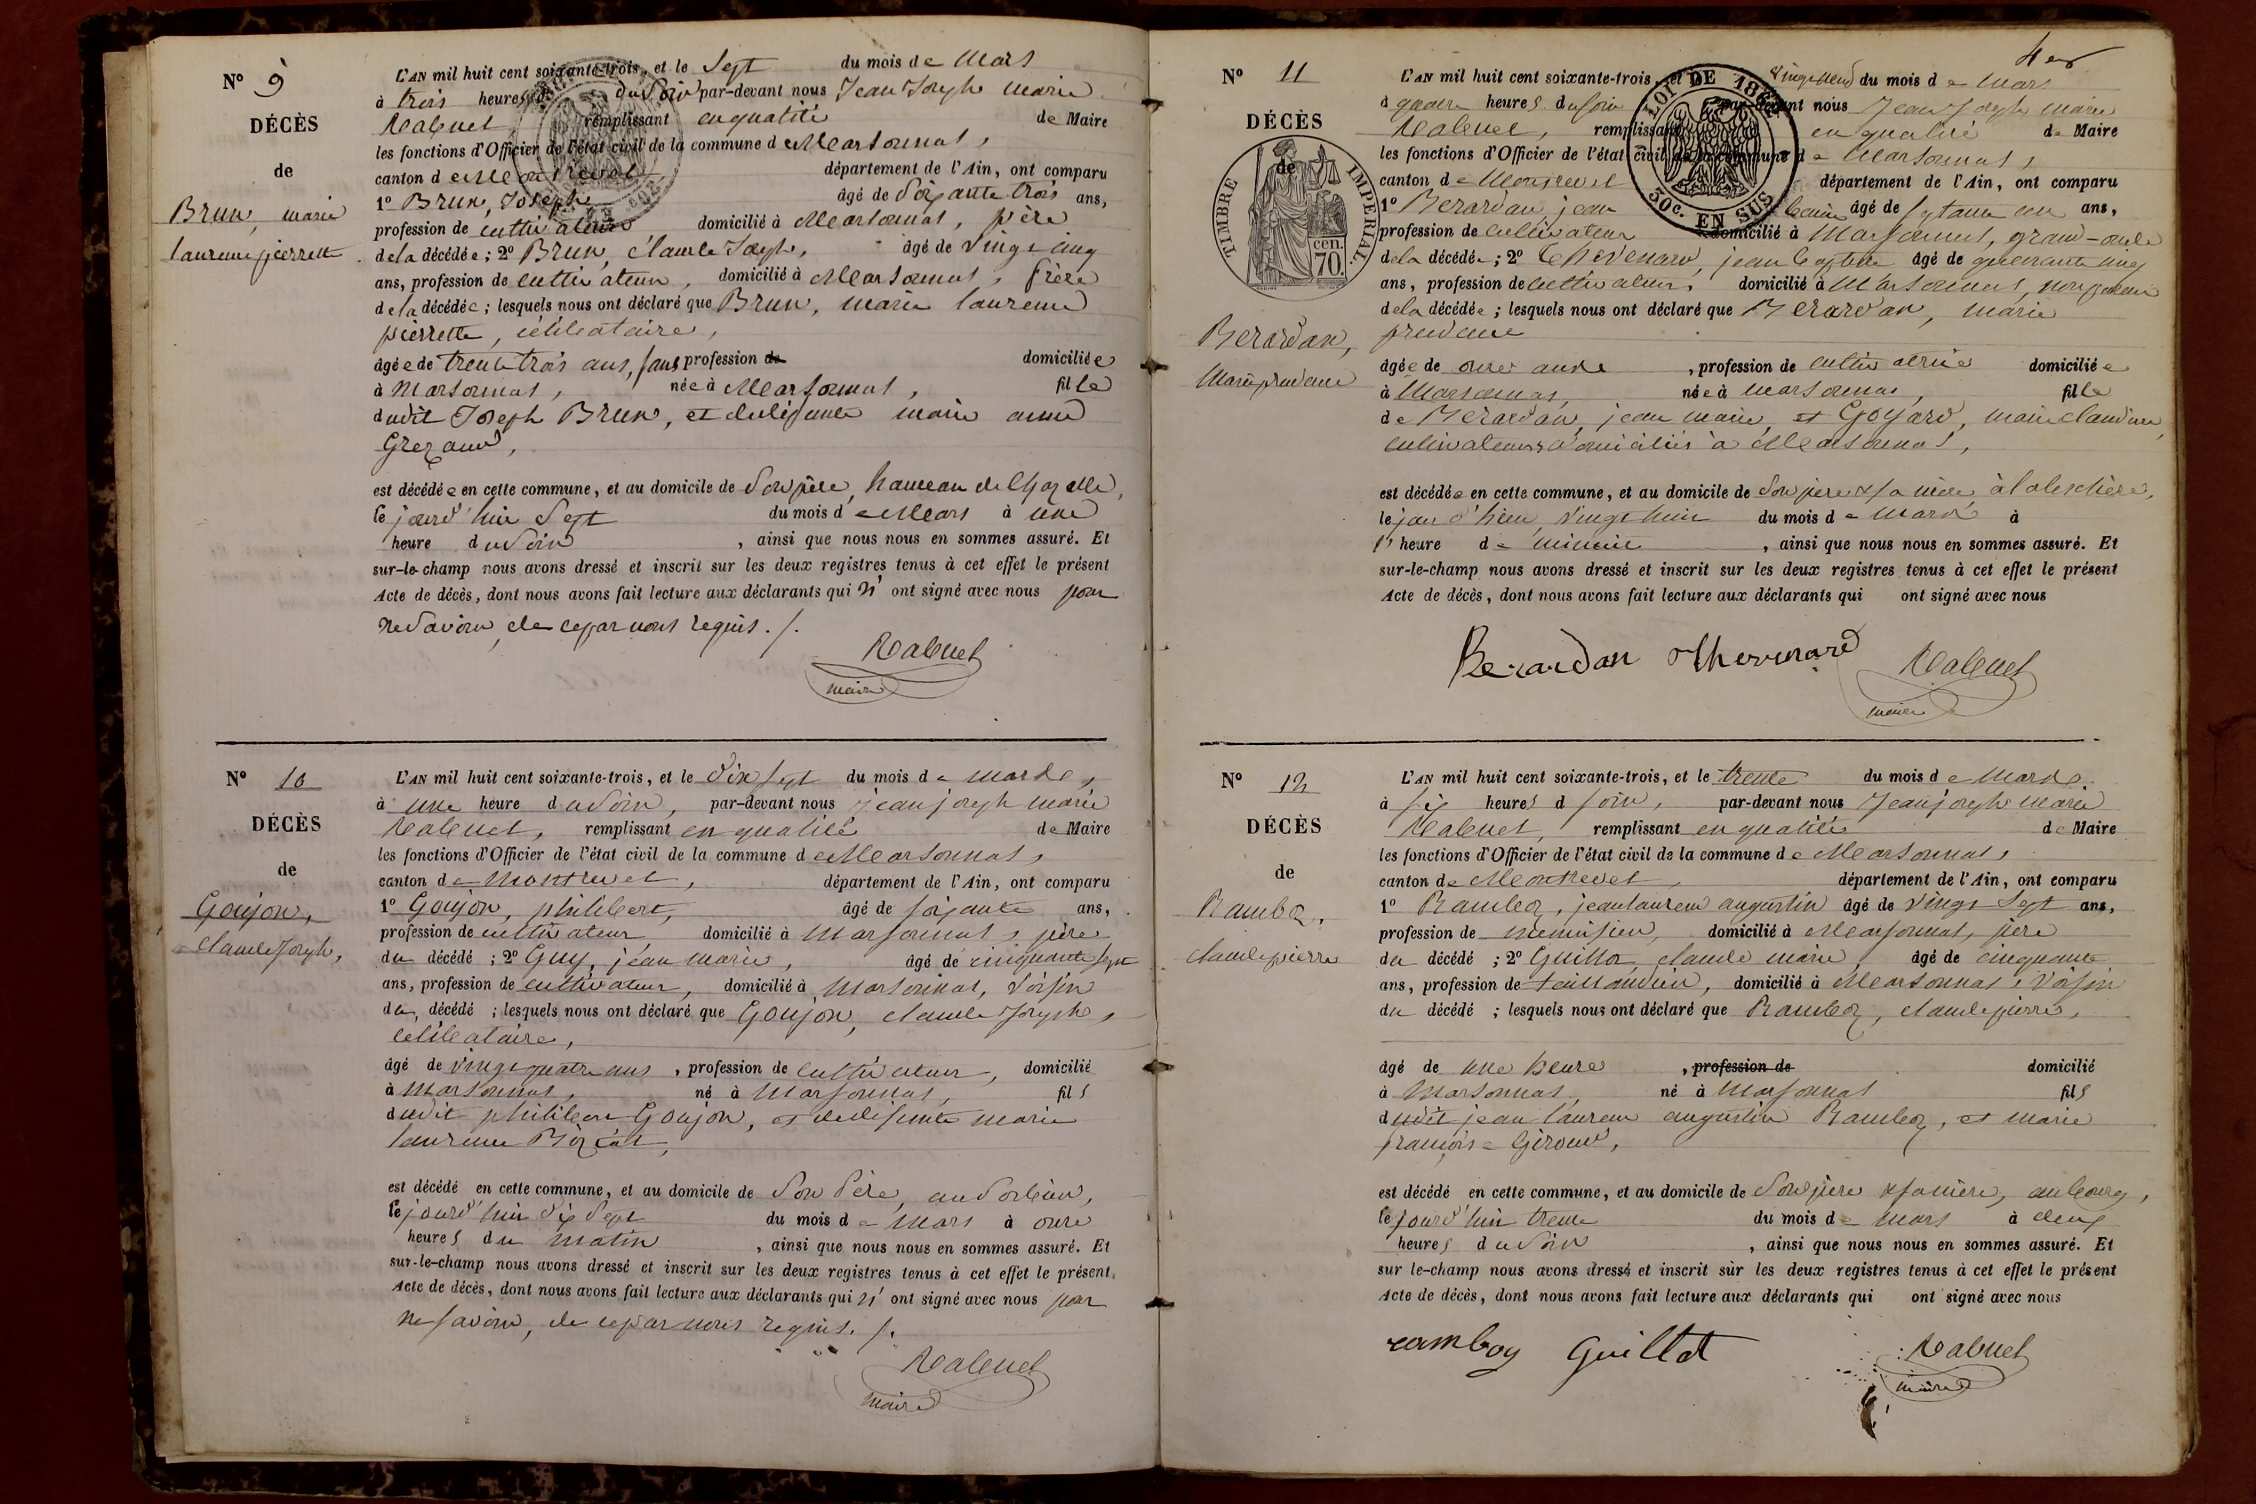 N° 9
DÉCÈS
de
Brun, marie
laurence pierrette
L'AN mil huit cent soixante-trois, et le Sept du mois de Mars
à trois heures du Soir par-devant nous Jean Joseph marie
Rabuel, remplissant en qualité de Maire
les fonctions d'Officier de l'état civil de la commune de Marsonnas,
canton de Montrevel, département de l'Ain, ont comparu
1° Brun, Joseph âgé de Soixante trois ans,
profession de cultivateur domicilié à Marsonnas, père
de la décédée; 2° Brun, Claude Joseph, âgé de vingt cinq
ans, profession de cultivateur, domicilié à Marsonnas, frère
de la décédée; lesquels nous ont déclaré que Brun, marie laurence
pierrette, célibataire,
âgée de trente trois ans, sans profession de domiciliée
à Marsonnas, née à Marsonnas, fille
dudit Joseph Brun, et de défunte marie anne
est décédée en cette commune, et au domicile de Son père, hameau de
le jourd'hui Sept du mois de Mars à une
heure du Soir, ainsi que nous nous en sommes assuré. Et
sur-le-champ nous avons dressé et inscrit sur les deux registres tenus à cet effet le présent
Acte de décès, dont nous avons fait lecture aux déclarants qui n' ont signé avec nous pour
ne Savoir, de ce par nous requis./.
Rabuel
maire
N° 10
DÉCÈS
de
Goujon,
claude Joseph,
L'AN mil huit cent soixante-trois, et le Dix sept du mois de mars,
à une heure du Soir, par-devant nous jean joseph marie
Rabuel, remplissant en qualité de Maire
les fonctions d'Officier de l'état civil de la commune de Marsonnas,
canton de Montrevel, département de l'Ain, ont comparu
1° Goujon, philibert, âgé de soixante ans,
profession de cultivateur domicilié à Marsonnas, père
du décédé; 2° Guy, jean marie, âgé de cinquante sept
ans, profession de cultivateur, domicilié à Marsonnas, voisin
du décédé; lesquels nous ont déclaré que Goujon, claude Joseph,
célibataire,
âgé de vingt quatre ans, profession de cultivateur, domicilié
à Marsonnas, né à Marsonnas, fils
dudit philibert Goujon, et de défunte marie
laurence
est décédé en cette commune, et au domicile de Son Père,
le jourd'hui dix Sept du mois de Mars à onze
heures du matin, ainsi que nous nous en sommes assuré. Et
sur-le-champ nous avons dressé et inscrit sur les deux registres tenus à cet effet le présent
Acte de décès, dont nous avons fait lecture aux déclarants qui n' ont signé avec nous pour
ne savoir, de ce par nous requis./.
Rabuel
maire
N° 11
DÉCÈS
de
TIMBRE IMPÉRIAL
70 cen.
Berardan,
Marie prudence
LOI DE 1862
30c. EN SUS
L'AN mil huit cent soixante-trois, et le vingt neuf du mois de mars
à quatre heures du soir par-devant nous Jean Joseph marie
Rabuel, remplissant en qualité de Maire
les fonctions d'Officier de l'état civil de la commune de Marsonnas,
canton de Montrevel département de l'Ain, ont comparu
1° Berardan, jean âgé de ans,
profession de cultivateur domicilié à Marsonnas, grand-oncle
de la décédée; 2° Thevenard, jean baptiste âgé de quarante cinq
ans, profession de cultivateur, domicilié à Marsonnas, non parent
de la décédée; lesquels nous ont déclaré que Berardan, marie
prudence
âgée de onze ans, profession de cultivatrice domiciliée
à Marsonnas, née à marsonnas, fille
de Berardan, jean marie, et Goyard, marie claudine
cultivateurs domiciliés à Marsonnas,
est décédée en cette commune, et au domicile de Son père & sa mère
le jour d'hier, vingt huit du mois de mars à
heure de minuit, ainsi que nous nous en sommes assuré. Et
sur-le-champ nous avons dressé et inscrit sur les deux registres tenus à cet effet le présent
Acte de décès, dont nous avons fait lecture aux déclarants qui ont signé avec nous
Berardan Thevenard Rabuel
maire
N° 12
DÉCÈS
de
Ramboz,
claude pierre
L'AN mil huit cent soixante-trois, et le trente du mois de Mars
à six heures d soir, par-devant nous Jean joseph marie
Rabuel, remplissant en qualité de Maire
les fonctions d'Officier de l'état civil de la commune de Marsonnas,
canton de Montrevel, département de l'Ain, ont comparu
1° Ramboz, jean laurent augustin âgé de vingt Sept ans,
profession de menuisier, domicilié à Marsonnas, père
du décédé; 2° Guillot, claude marie âgé de cinquante
ans, profession de taillandier, domicilié à Marsonnas, voisin
du décédé; lesquels nous ont déclaré que Ramboz, claude pierre,
âgé de une heure, profession de domicilié
à Marsonnas, né à Marsonnas fils
dudit jean laurent augustin Ramboz, et marie
françoise Giroud,
est décédé en cette commune, et au domicile de Son père & sa mère, au bourg,
le jourd'hui trente du mois de mars à deux
heures du Soir, ainsi que nous nous en sommes assuré. Et
sur le-champ nous avons dressé et inscrit sur les deux registres tenus à cet effet le présent
Acte de décès, dont nous avons fait lecture aux déclarants qui ont signé avec nous
ramboz Guillot Rabuel
maire